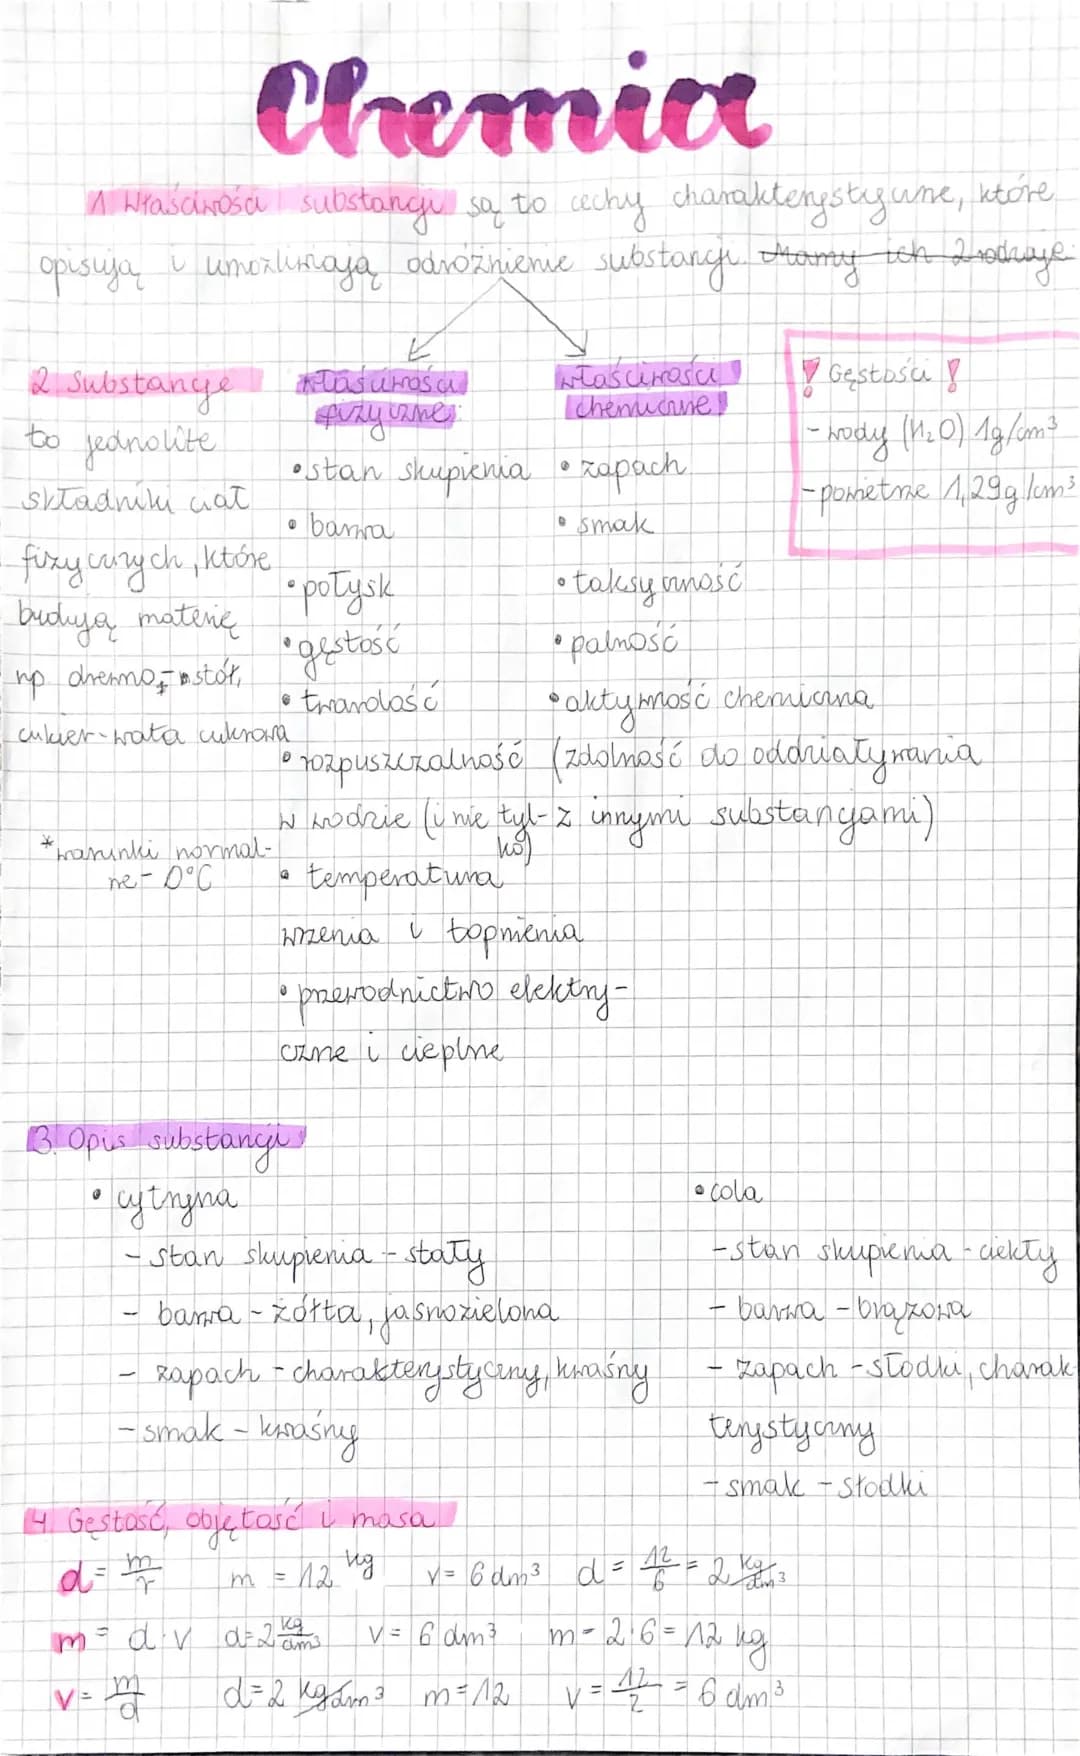 Chemia
1. Właściwości substancji są to cechy charakterystyczne, które
opisują i umożliwiają odróżnienie substancji. Mamy ich 2 rodzaje
2. Substancje
to jednolite
składniki ciał
fizycznych, które
budują materię
np. drewno - stół,
cukier - wata cukrowa
*warunki normal-
ne - 0°C
właściwości
fizyczne:
• stan skupienia
• barwa
• połysk
• gęstość
• twardość
• rozpuszczalność
w wodzie (i nie tyl-
ko)
• temperatura
wrzenia i topnienia
• przewodnictwo elektry-
czne i cieplne
właściwości
chemiczne
• zapach
• smak
• toksyczność
• palność
• aktywność chemiczna
(zdolność do oddziaływania
z innymi substancjami)
! Gęstości !
- wody (H₂O) 1g/cm³
- powietrze 1,29g/cm³
3. Opis substancji
• cytryna
- stan skupienia - stały
- barwa - żółta, jasnozielona
- zapach - charakterystyczny, kwaśny
- smak - kwaśny
• cola
- stan skupienia - ciekły
- barwa - brązowa
- zapach - słodki, charak-
terystyczny
- smak - słodki
4. Gęstość, objętość i masa
d = m/v m = 12 kg v = 6 dm³ d = 12/6 = 2 kg/dm³
m = d·v d = 2 kg/dm³ v = 6 dm³ m = 2·6 = 12 kg
v = m/d d = 2 kg/dm³ m = 12 v = 12/2 = 6 dm³